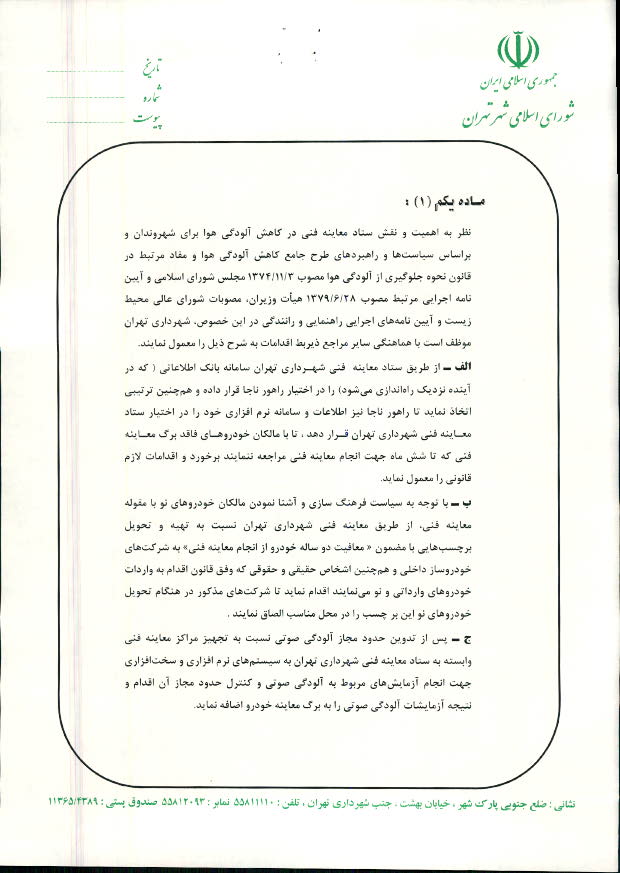 جمهوری اسلامی ایران
شورای اسلامی شهر تهران
تاریخ
شماره
پیوست
مـاده یکم (۱) :
نظر به اهمیت و نقش ستاد معاینه فنی در کاهش آلودگی هوا برای شهروندان و
براساس سیاست‌ها و راهبردهای طرح جامع کاهش آلودگی هوا و مفاد مرتبط در
قانون نحوه جلوگیری از آلودگی هوا مصوب ۱۳۷۴/۱۱/۳ مجلس شورای اسلامی و آیین
نامه اجرایی مرتبط مصوب ۱۳۷۹/۶/۲۸ هیأت وزیران، مصوبات شورای عالی محیط
زیست و آیین نامه‌های اجرایی راهنمایی و رانندگی در این خصوص، شهرداری تهران
موظف است با هماهنگی سایر مراجع ذیربط اقدامات به شرح ذیل را معمول نمایند.
الف ـ از طریق ستاد معاینه فنی شهـرداری تهران سامانه بانک اطلاعاتی ( که در
آینده نزدیک راه‌اندازی می‌شود) را در اختیار راهور ناجا قرار داده و هم‌چنین ترتیبی
اتخاذ نماید تا راهور ناجا نیز اطلاعات و سامانه نرم افزاری خود را در اختیار ستاد
معـاینه فنی شهرداری تهران قـرار دهد ، تا با مالکان خودروهـای فاقد برگ معـاینه
فنی که تا شش ماه جهت انجام معاینه فنی مراجعه ننمایند برخورد و اقدامات لازم
قانونی را معمول نماید.
ب ـ با توجه به سیاست فرهنگ سازی و آشنا نمودن مالکان خودروهای نو با مقوله
معاینه فنی، از طریق معاینه فنی شهرداری تهران نسبت به تهیه و تحویل
برچسب‌هایی با مضمون « معافیت دو ساله خودرو از انجام معاینه فنی» به شرکت‌های
خودروساز داخلی و هم‌چنین اشخاص حقیقی و حقوقی که وفق قانون اقدام به واردات
خودروهای وارداتی و نو می‌نمایند اقدام نماید تا شرکت‌های مذکور در هنگام تحویل
خودروهای نو این بر چسب را در محل مناسب الصاق نمایند .
ج ـ پس از تدوین حدود مجاز آلودگی صوتی نسبت به تجهیز مراکز معاینه فنی
وابسته به ستاد معاینه فنی شهرداری تهران به سیستم‌های نرم افزاری و سخت‌افزاری
جهت انجام آزمایش‌های مربوط به آلودگی صوتی و کنترل حدود مجاز آن اقدام و
نتیجه آزمایشات آلودگی صوتی را به برگ معاینه خودرو اضافه نماید.
نشانی : ضلع جنوبی پارک شهر ، خیابان بهشت ، جنب شهرداری تهران ، تلفن : ۵۵۸۱۱۱۱۰ نمابر : ۵۵۸۱۲۰۹۳ صندوق پستی : ۱۱۳۶۵/۴۳۸۹